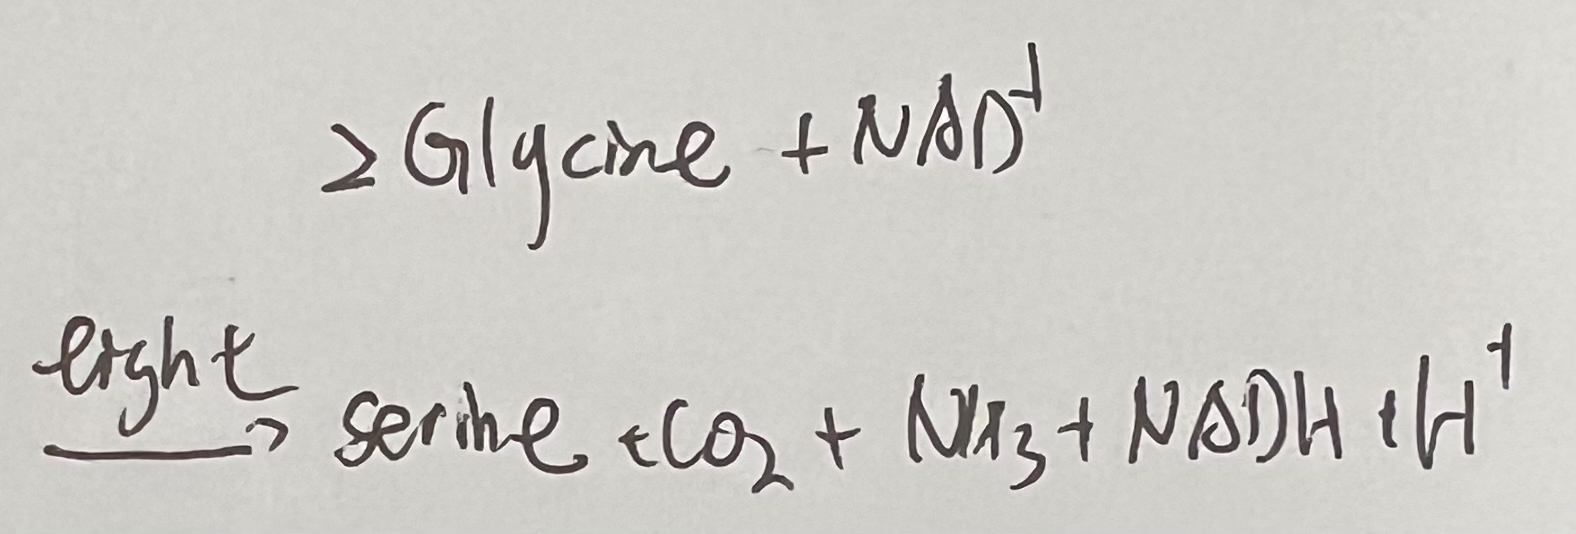 2 Glycine + NAD⁺
light
⟶ serine + CO₂ + NH₃ + NADH + H⁺